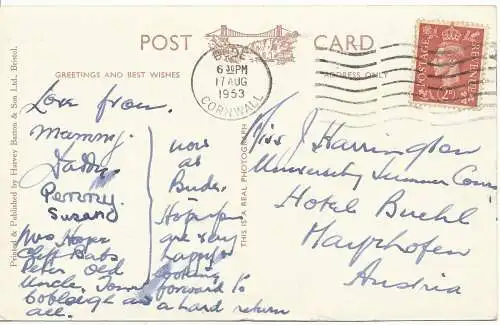 POST CARD
GREETINGS AND BEST WISHES
ADDRESS ONLY
BUDE
6 30 PM
17 AUG
1953
CORNWALL
POSTAGE REVENUE
Printed & Published by Harvey Barton & Son Ltd., Bristol.
THIS IS A REAL PHOTOGRAPH
Love from
Mammy
Daddy
Penny
Susand
Mrs Hope
Cliff Babs
Peter Old
Uncle Tom
Cobleigh as
all.
now
at
Bude.
are very
happy
looking
forward to
a hard return
Miss J Harrington
University Summer Course
Hotel Buehl
Mayrhofen
Austria